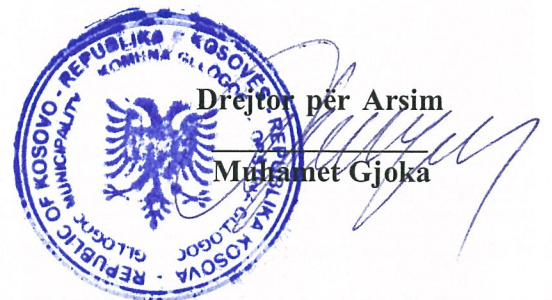 REPUBLIKA E KOSOVËS - REPUBLIKA KOSOVA - REPUBLIC OF KOSOVO -
KOMUNA GLLOGOC
GLLOGOC
MUNICIPALITY GLLOGOC
Drejtor për Arsim
Muhamet Gjoka